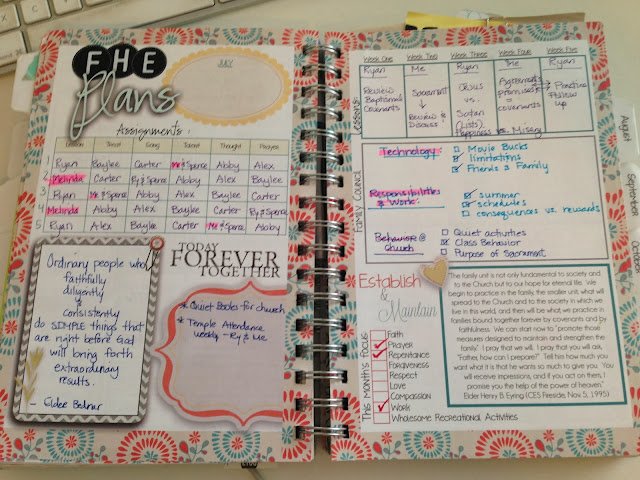 FHE
Plans
JULY
Assignments:
Lesson Treat Song Talent Thought Prayer
1 Ryan Baylee Carter Me & Spence Abby Alex
2 Melinda Carter Ry & Spence Abby Alex Baylee
3 Ryan Me & Spence Abby Alex Baylee Carter
4 Melinda Abby Alex Baylee Carter Ry & Spence
5 Ryan Alex Baylee Carter Me & Spence Abby
Ordinary people who
faithfully
diligently
&
consistently
do SIMPLE things that
are right before God
will bring forth
extraordinary
results.
- Elder Bednar
TODAY
FOREVER
TOGETHER
* Quiet Books for church
* Temple Attendance
weekly - Ry & Me
Week One Week Two Week Three Week Four Week Five
Lessons:
Ryan Me Ryan Me Ryan
Review
Baptismal
Covenants
Sacrament
↓
Review &
Discuss
Jesus
vs.
Satan
(Lists)
Happiness vs. Misery
Agreements
promises
=
covenants
→ Practice
Follow
up
Family Council
Technology:
Movie Bucks
limitations
Friends & Family
Responsibilities
& Work:
summer
schedules
consequences vs. rewards
Behavior @
Church
Quiet activities
Class Behavior
Purpose of Sacrament
Establish
& Maintain
THIS MONTH'S FOCUS:
Faith
Prayer
Repentance
Forgiveness
Respect
Love
Compassion
Work
Wholesome Recreational Activities
The family unit is not only fundamental to society and
to the Church but to our hope for eternal life. We
begin to practice in the family, the smaller unit, what will
spread to the Church and to the society in which we
live in this world, and then will be what we practice in
families bound together forever by covenants and by
faithfulness. We can start now to "promote those
measures designed to maintain and strengthen the
family." I pray that we will. I pray that you will ask,
"Father, how can I prepare?" Tell him how much you
want what it is that he wants so much to give you. You
will receive impressions, and if you act on them, I
promise you the help of the power of heaven."
Elder Henry B. Eyring (CES Fireside, Nov. 5, 1995)
August
September